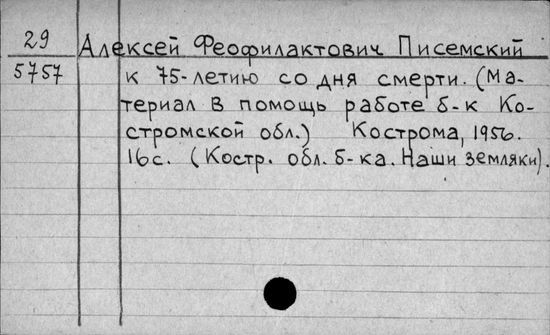 29
5757
Алексей Феофилактович Писемский
к 75-летию со дня смерти. (Ма-
териал в помощь работе б-к Ко-
стромской обл.) Кострома, 1956.
16с. (Костр. обл. б-ка. Наши земляки).